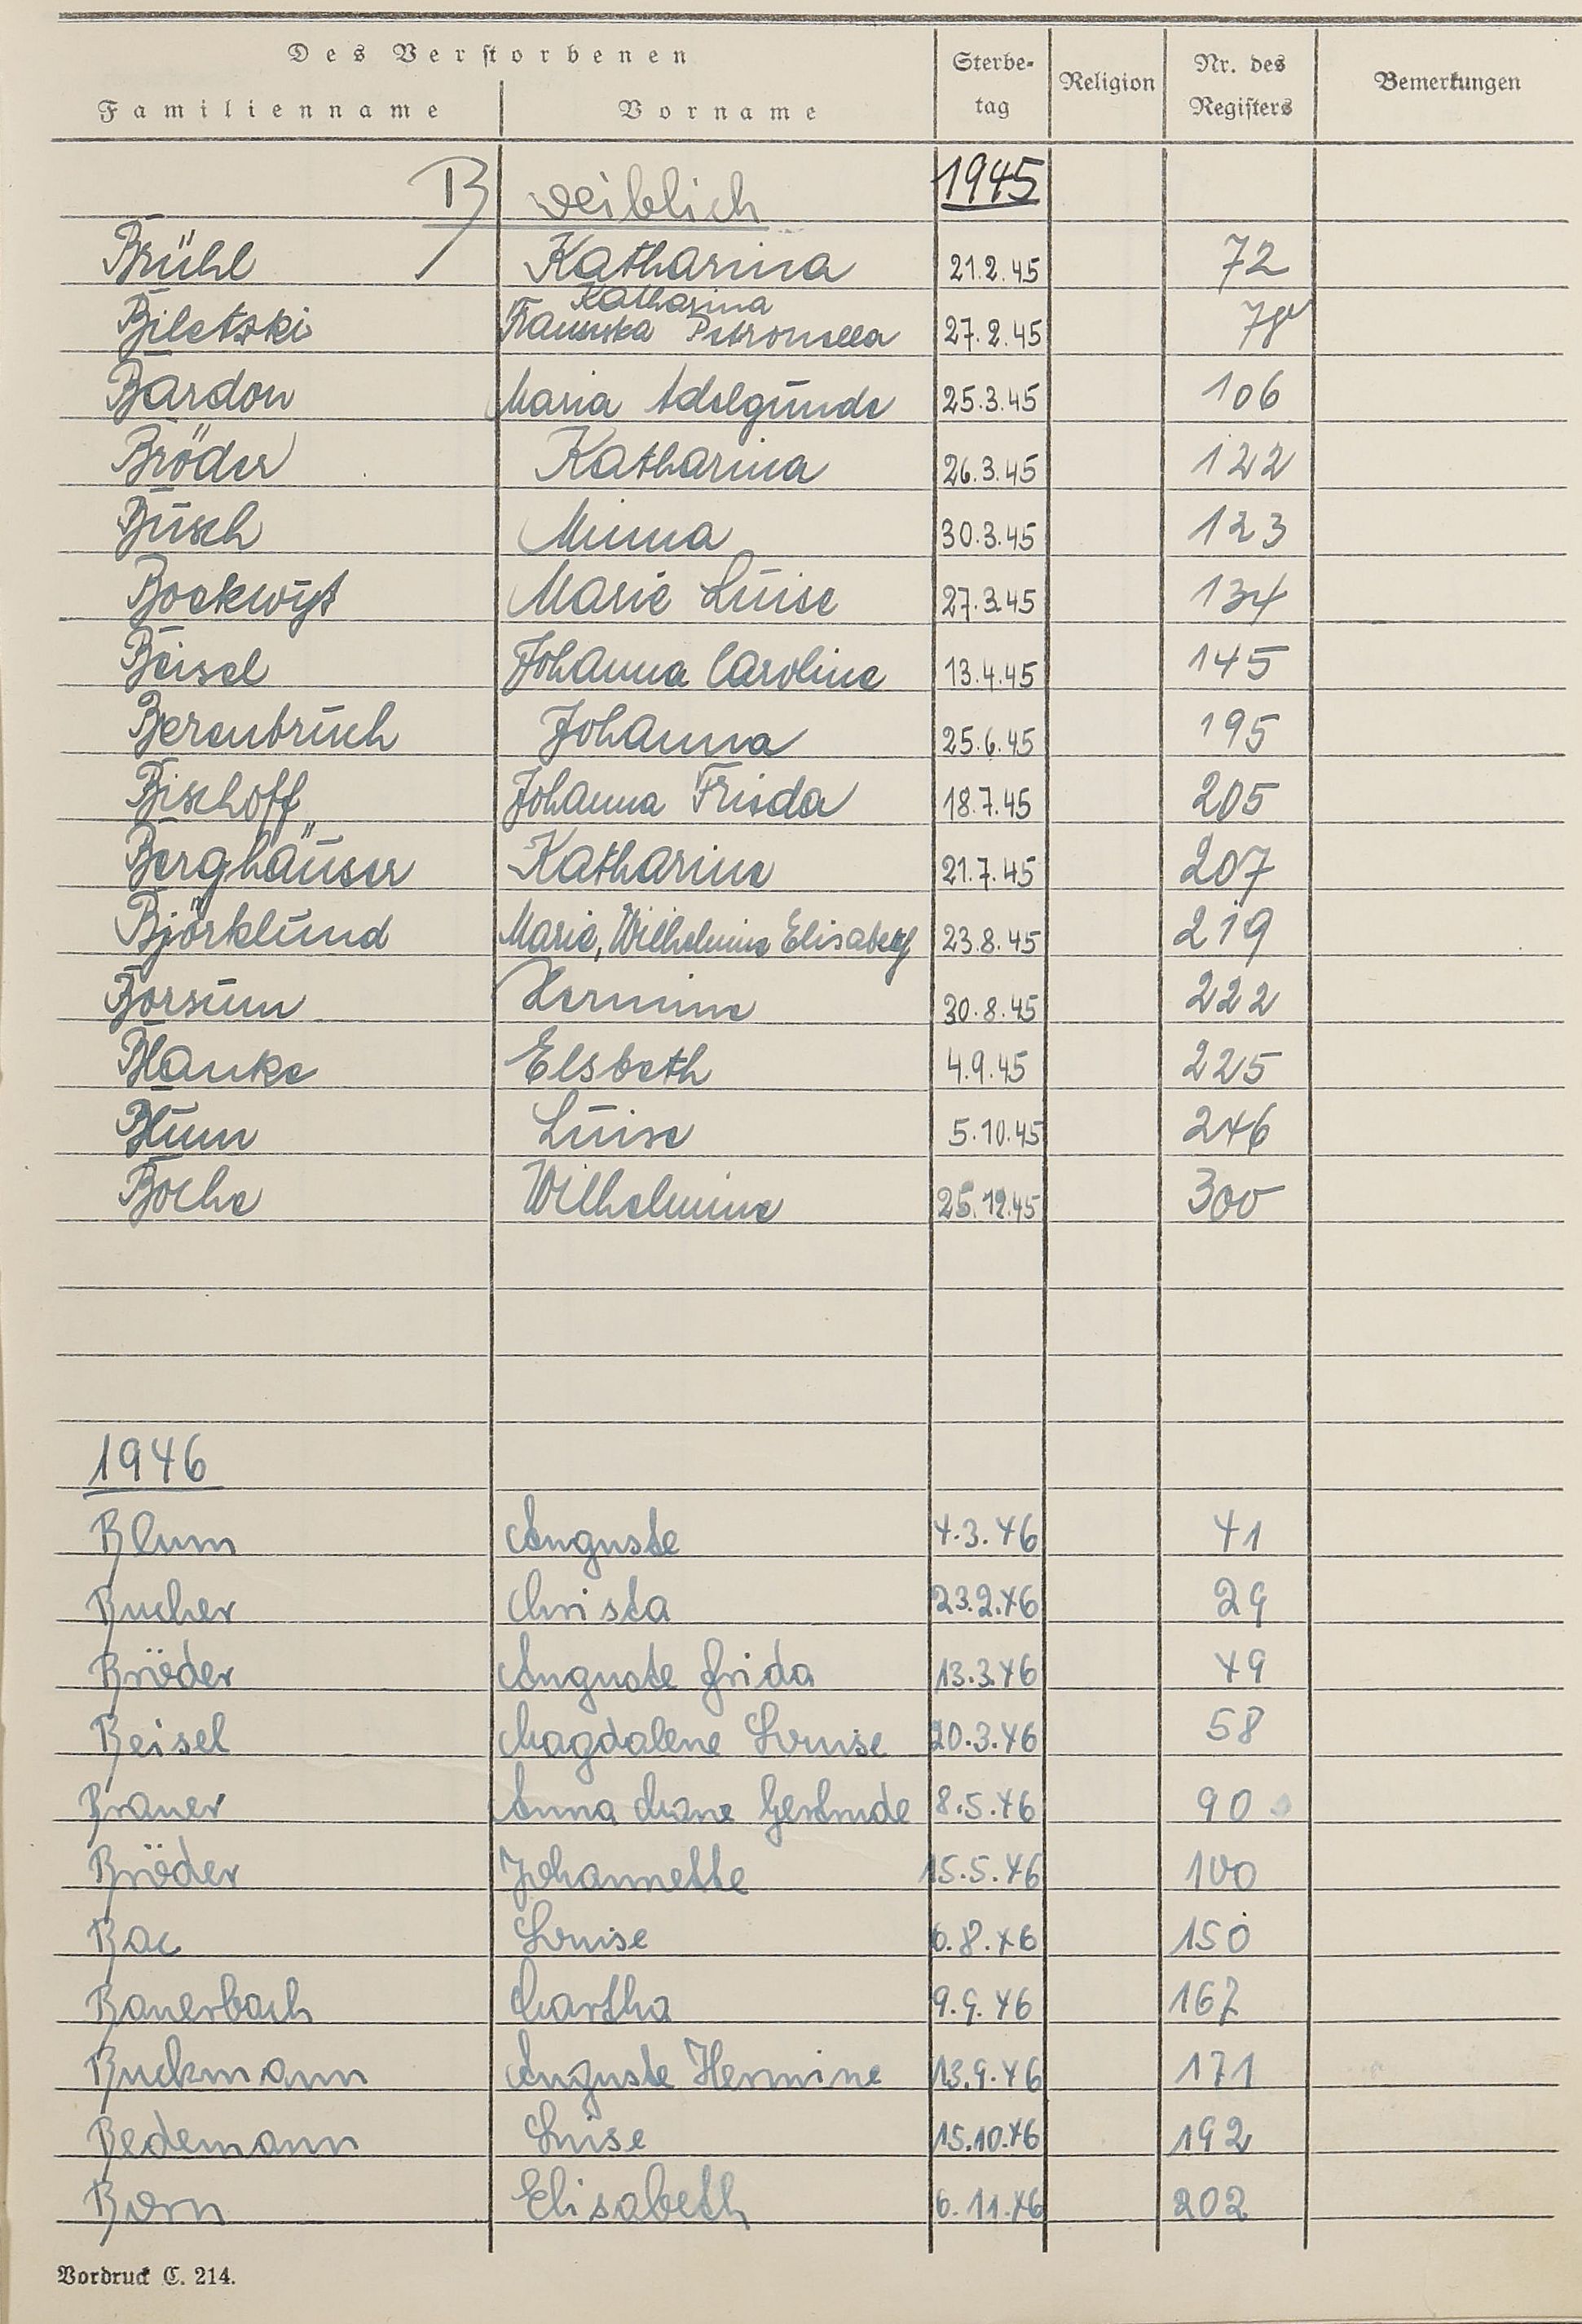 Des Verstorbenen
Sterbe-
tag
Religion
Nr. des
Registers
Bemerkungen
Familienname Vorname
B weiblich 1945
Brühl Katharina 21.2.45 72
Katharina
Biletzki Franziska Petronella 27.2.45 78
Bardon Maria Adelgunde 25.3.45 106
Bröder Katharina 26.3.45 122
Busch Minna 30.3.45 123
Bockwyt Marie Luise 27.3.45 134
Beisel Johanna Caroline 13.4.45 145
Berenbruch Johanna 25.6.45 195
Bischoff Johanna Frieda 18.7.45 205
Berghäuser Katharine 21.7.45 207
Björklund Marie, Wilhelmine Elisabeth 23.8.45 219
Borsum Hermine 30.8.45 222
Blanke Elsbeth 4.9.45 225
Blum Luise 5.10.45 246
Boche Wilhelmine 12.45 300
1946
Blum Auguste 4.3.46 41
Bucher Christa 23.2.46 29
Bröder Auguste Frida 13.3.46 49
Beisel Magdalene Louise 20.3.46 58
Brauer Anna Marie Gertrude 8.5.46 90
Bröder Johannette 15.5.46 100
Bac Louise 6.8.46 150
Bauerbach Martha 9.9.46 167
Buckmann Auguste Hermine 13.9.46 171
Bedemann Luise 15.10.46 192
Born Elisabeth 6.11.46 202
Vordruck C. 214.